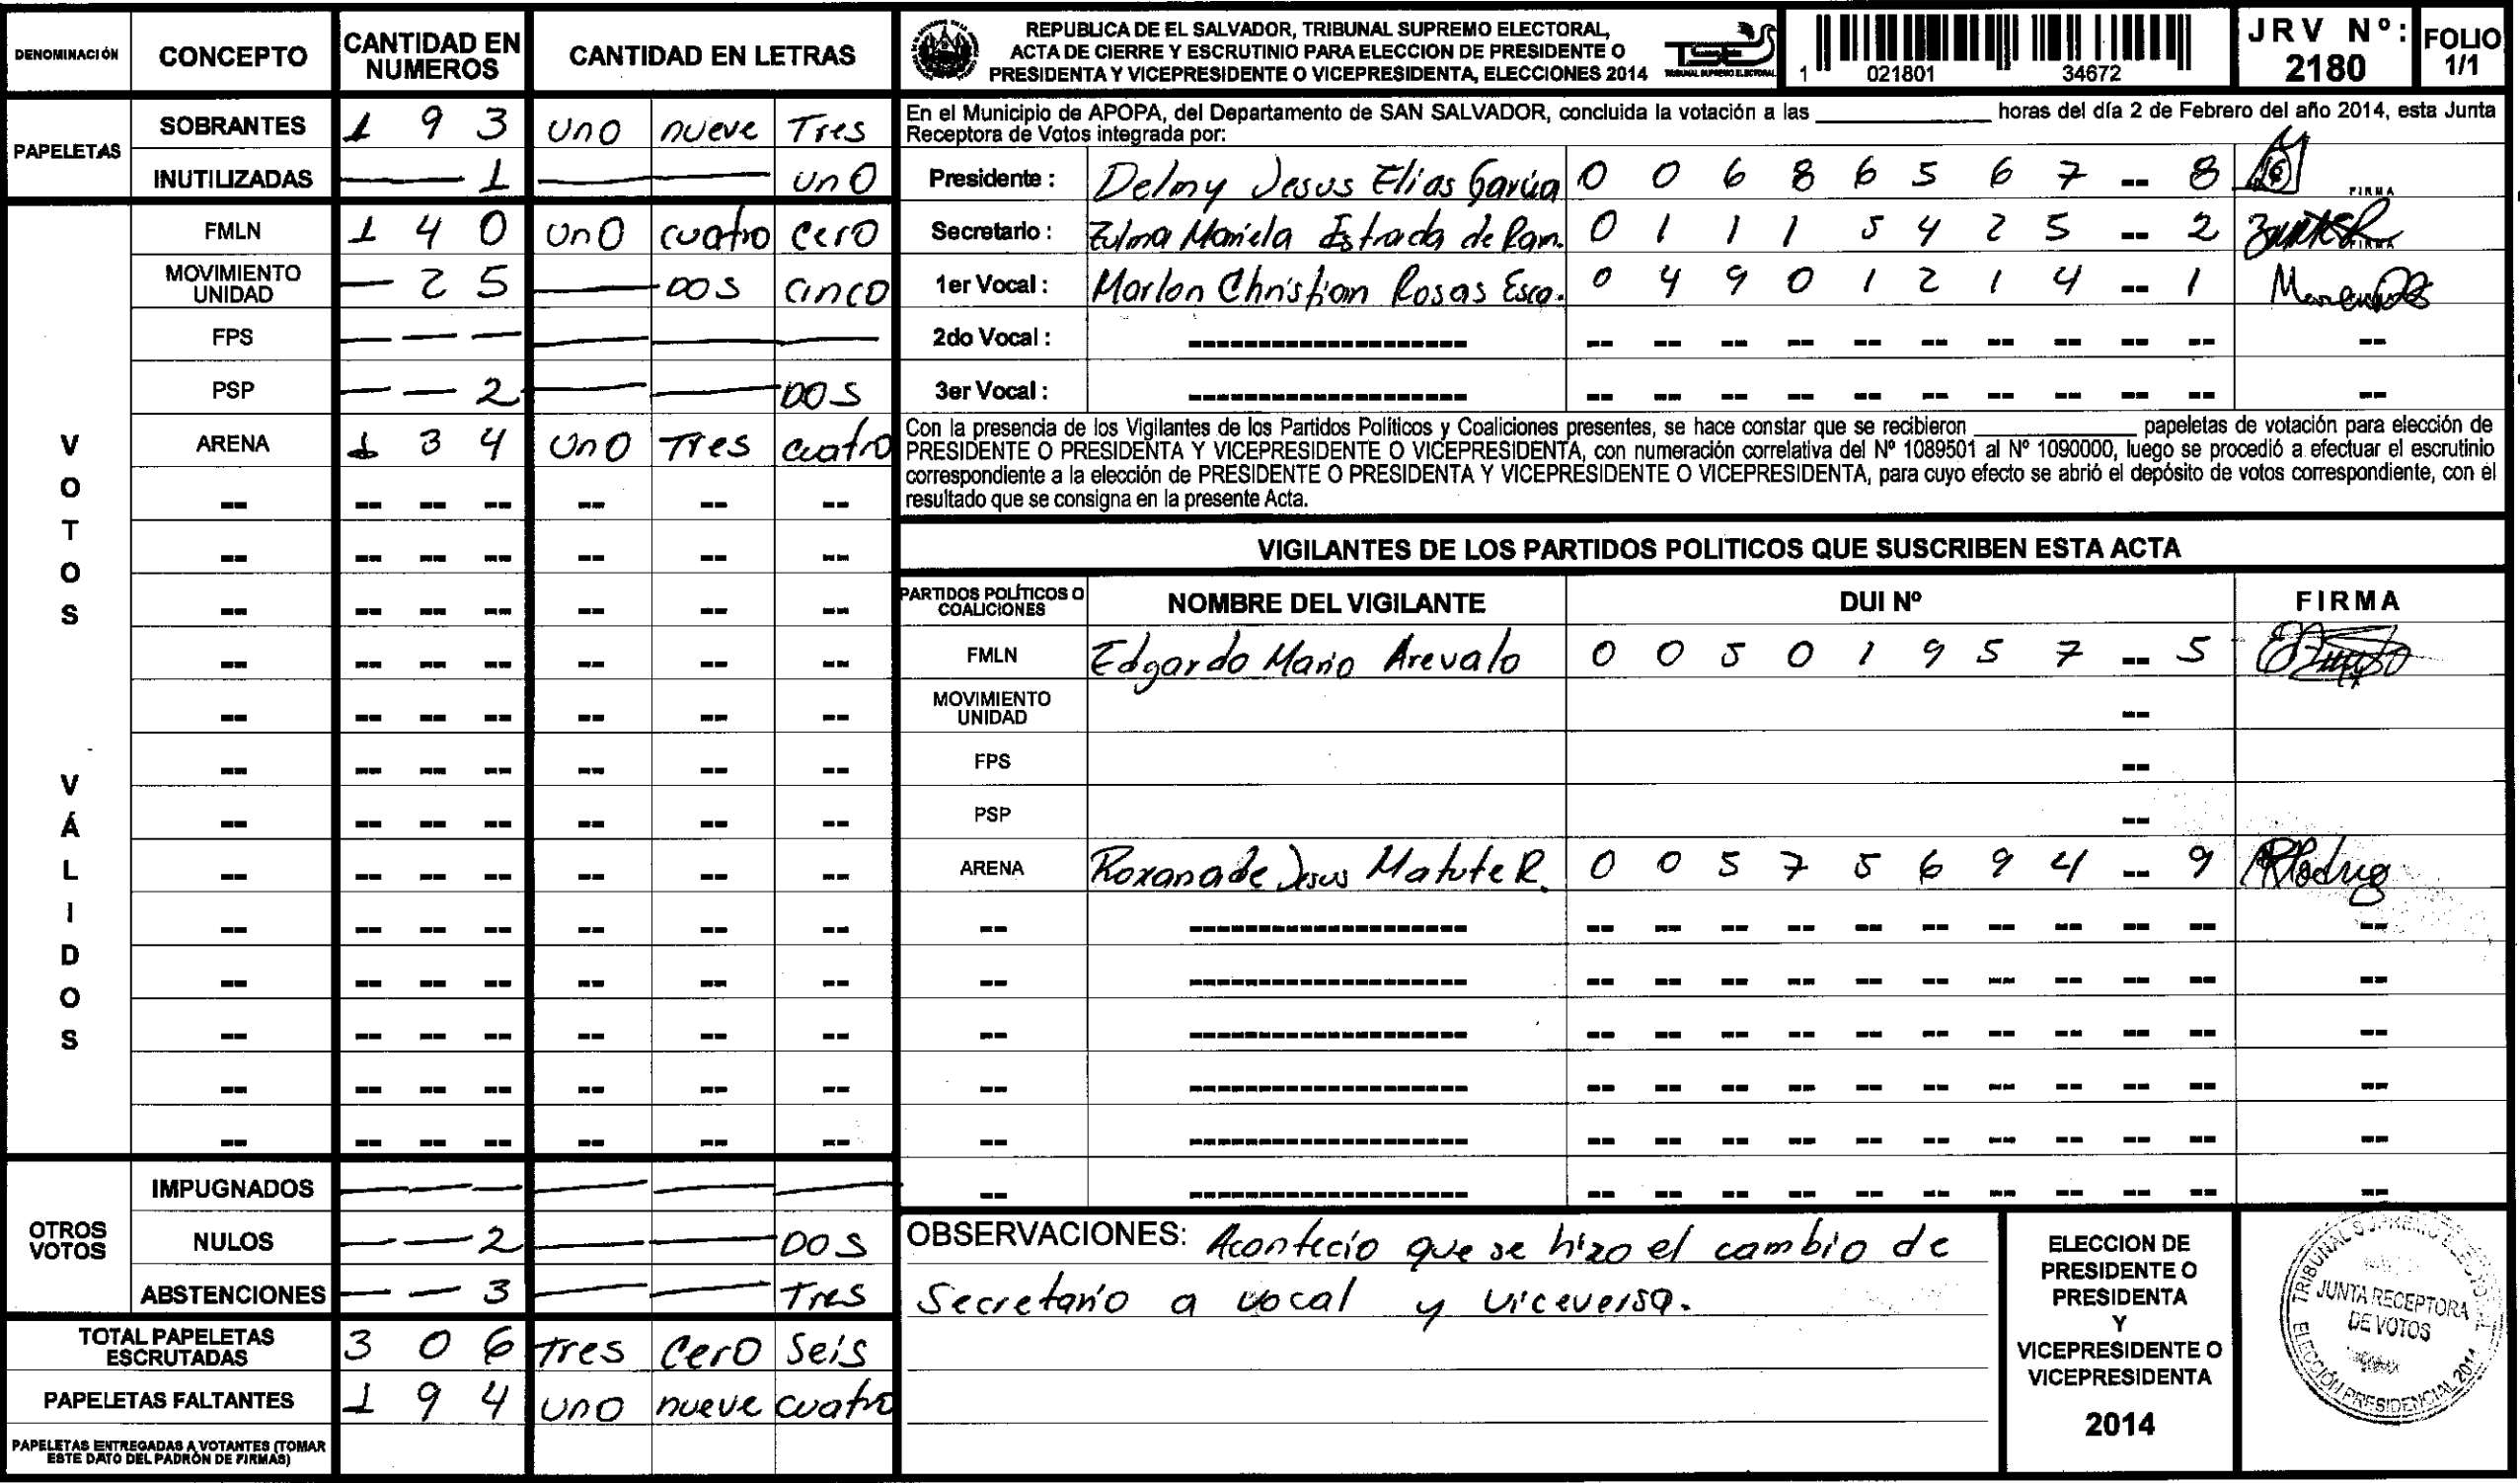 DENOMINACIÓN CONCEPTO CANTIDAD EN NUMEROS CANTIDAD EN LETRAS
PAPELETAS
SOBRANTES 1 9 3 uno nueve Tres
INUTILIZADAS — — 1 — — unO
VOTOS VÁLIDOS
FMLN 1 4 0 unO cuatro cerO
MOVIMIENTO UNIDAD — 2 5 — DOS cinco
FPS — — — — — —
PSP — — 2 — — DOS
ARENA 1 3 4 UnO Tres cuatro
OTROS VOTOS
IMPUGNADOS — — — — — —
NULOS — — 2 — — DOS
ABSTENCIONES — — 3 — — Tres
TOTAL PAPELETAS ESCRUTADAS 3 0 6 tres cero seis
PAPELETAS FALTANTES 1 9 4 uno nueve cuatro
PAPELETAS ENTREGADAS A VOTANTES (TOMAR
ESTE DATO DEL PADRÓN DE FIRMAS)
REPUBLICA DE EL SALVADOR, TRIBUNAL SUPREMO ELECTORAL,
ACTA DE CIERRE Y ESCRUTINIO PARA ELECCION DE PRESIDENTE O
PRESIDENTA Y VICEPRESIDENTE O VICEPRESIDENTA, ELECCIONES 2014
TSE
TRIBUNAL SUPREMO ELECTORAL
1 021801 34672
JRV Nº: 2180
FOLIO 1/1
En el Municipio de APOPA, del Departamento de SAN SALVADOR, concluida la votación a las ________ horas del día 2 de Febrero del año 2014, esta Junta
Receptora de Votos integrada por:
Presidente : Delmy Jesus Elias García 0 0 6 8 6 5 6 7 -- 8 FIRMA
Secretario : Zulma Mariela Estrada de Ram. 0 1 1 1 5 4 2 5 -- 2 FIRMA
1er Vocal : Marlon Christian Rosas Esco. 0 4 9 0 1 2 1 4 -- 1
2do Vocal :
3er Vocal :
Con la presencia de los Vigilantes de los Partidos Políticos y Coaliciones presentes, se hace constar que se recibieron ________ papeletas de votación para elección de
PRESIDENTE O PRESIDENTA Y VICEPRESIDENTE O VICEPRESIDENTA, con numeración correlativa del Nº 1089501 al Nº 1090000, luego se procedió a efectuar el escrutinio
correspondiente a la elección de PRESIDENTE O PRESIDENTA Y VICEPRESIDENTE O VICEPRESIDENTA, para cuyo efecto se abrió el depósito de votos correspondiente, con el
resultado que se consigna en la presente Acta.
VIGILANTES DE LOS PARTIDOS POLITICOS QUE SUSCRIBEN ESTA ACTA
PARTIDOS POLÍTICOS O COALICIONES NOMBRE DEL VIGILANTE DUI Nº FIRMA
FMLN Edgardo Mario Arevalo 0 0 5 0 1 9 5 7 -- 5
MOVIMIENTO UNIDAD --
FPS --
PSP --
ARENA Roxana de Jesus Matute R. 0 0 5 7 5 6 9 4 -- 9
OBSERVACIONES: Acontecio que se hizo el cambio de
Secretario a vocal y viceversa.
ELECCION DE
PRESIDENTE O
PRESIDENTA
Y
VICEPRESIDENTE O
VICEPRESIDENTA
2014
TRIBUNAL SUPREMO ELECTORAL
JUNTA RECEPTORA
DE VOTOS
ELECCIÓN PRESIDENCIAL 2014